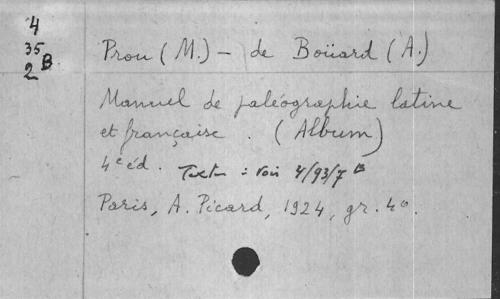 4
35
2 B
Prou (M.) - de Boüard (A.)
Manuel de paléographie latine
et française. (Album)
4e éd. Texte : voir 4/93/7 B
Paris, A. Picard, 1924, gr. 4o.